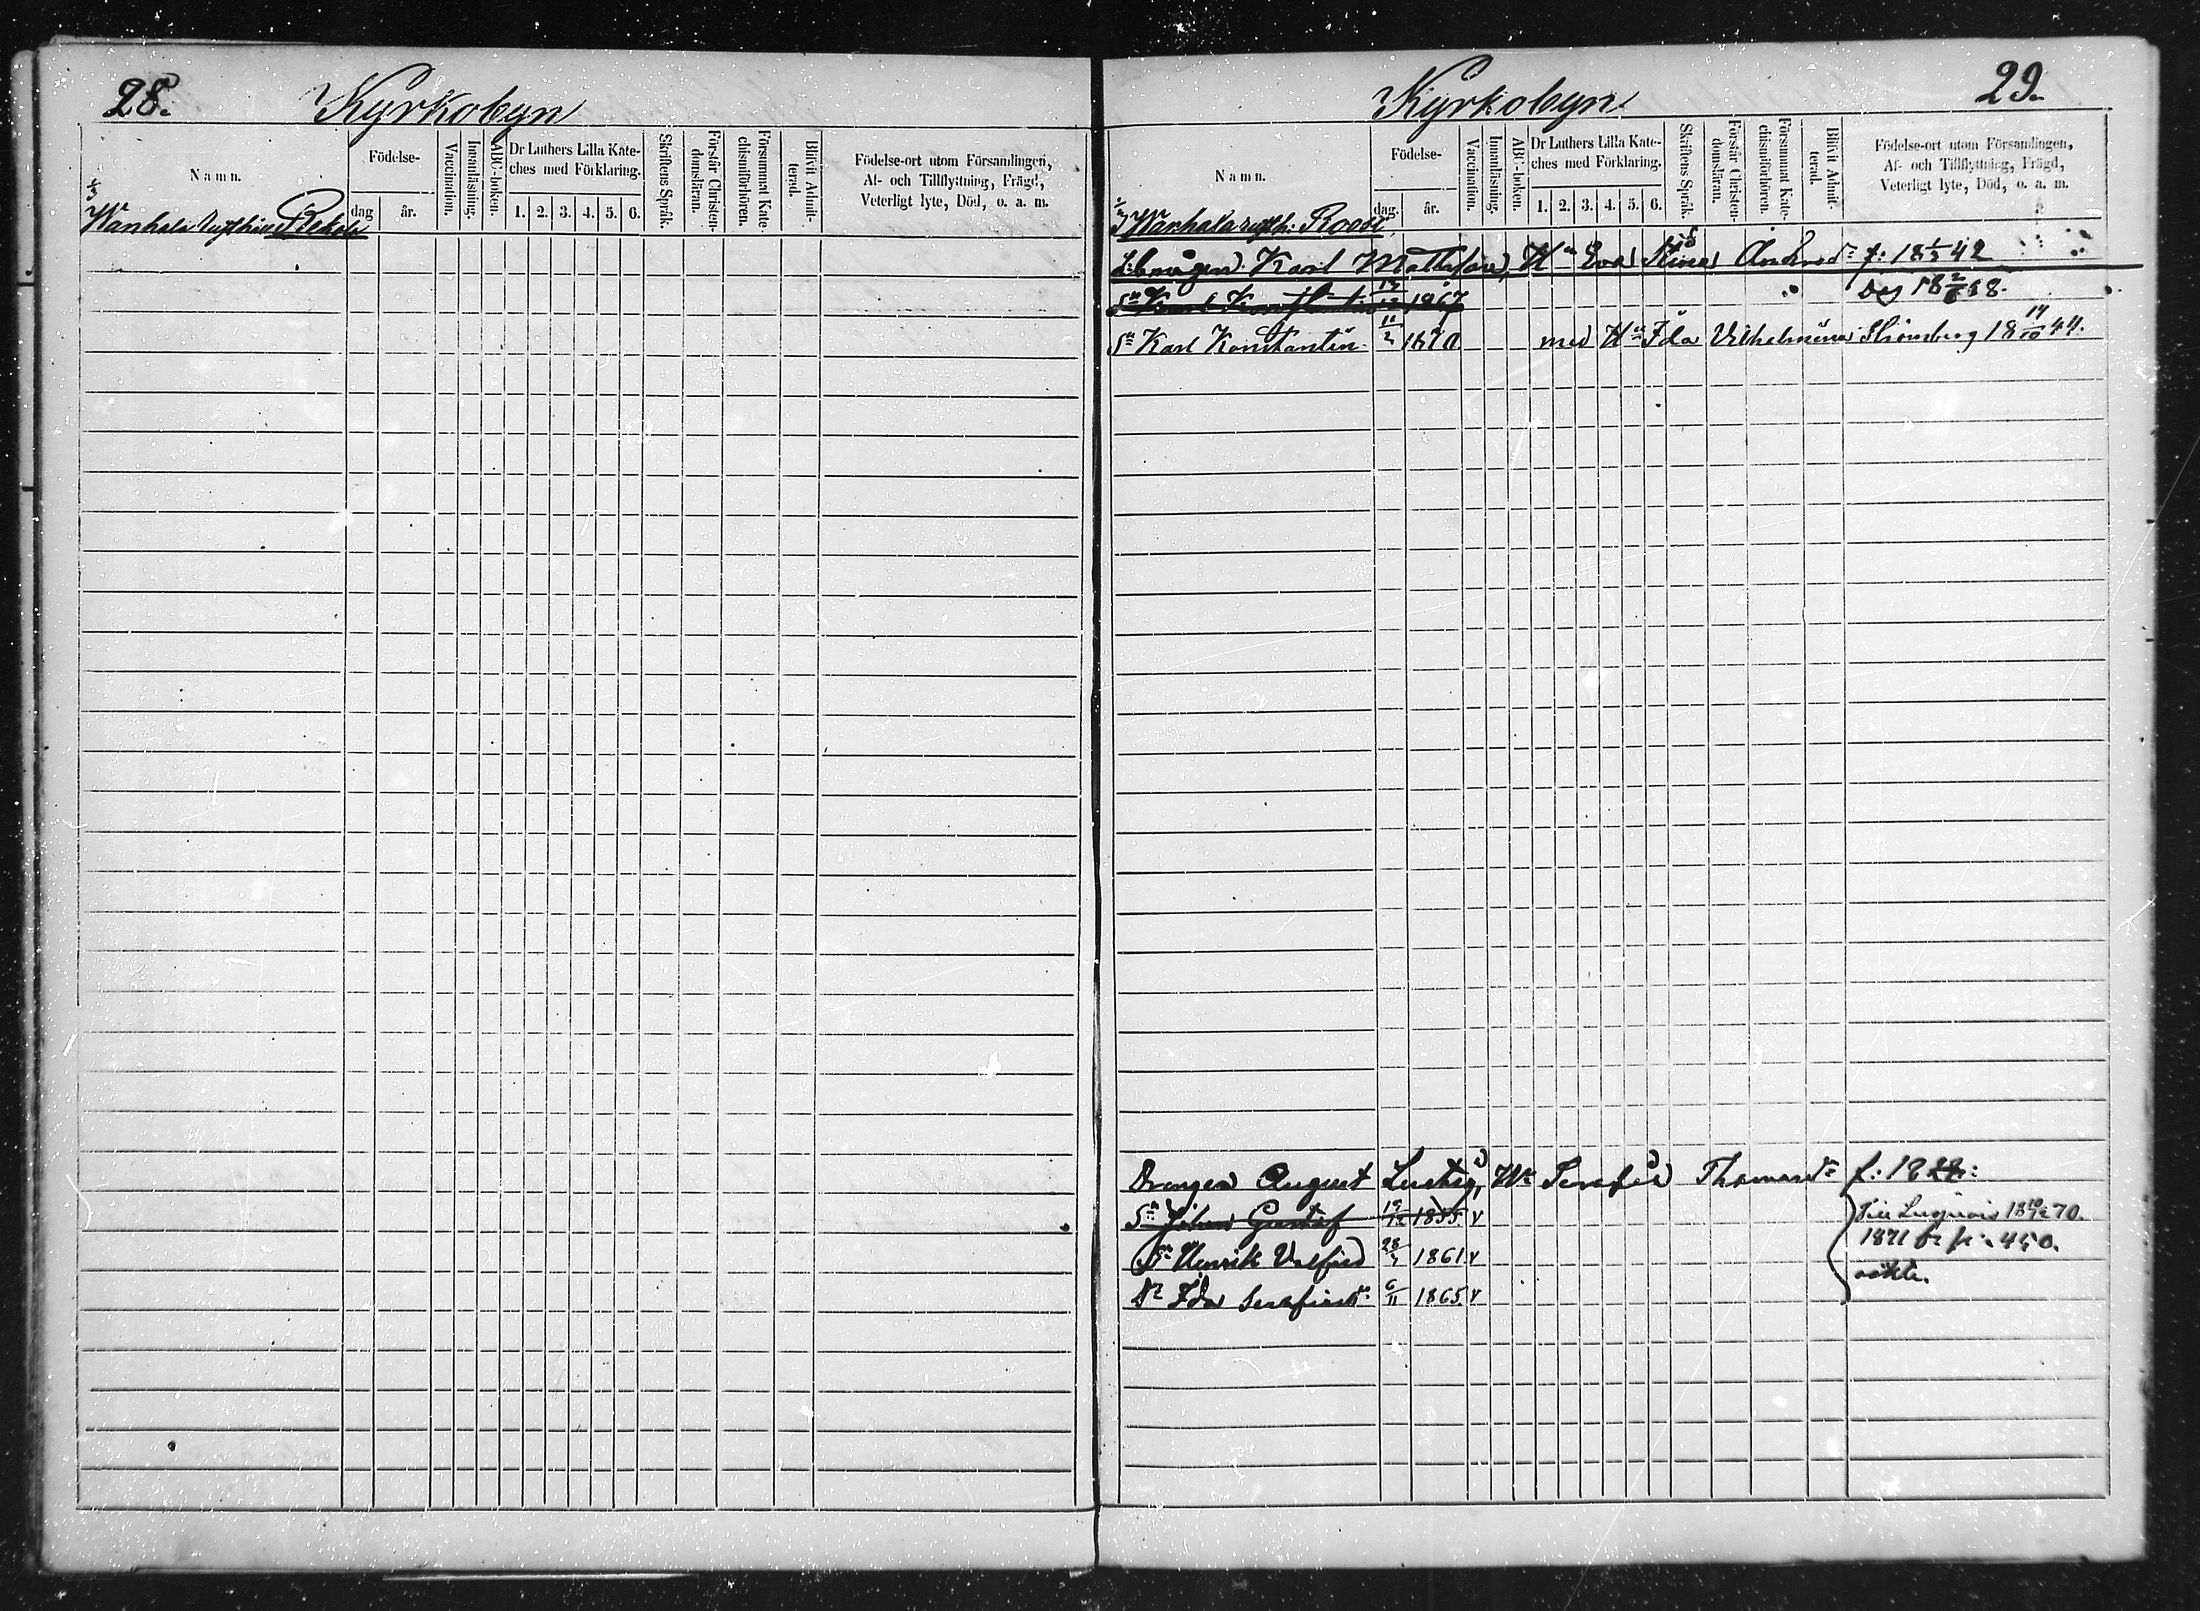 28.
Kyrkobyn
Namn.
Födelse-
dag
år.
Vaccination.
Innanläsning.
ABC-boken.
Dr Luthers Lilla Kate-
ches med Förklaring.
1. 2. 3. 4. 5. 6.
Skriftens Språk.
Förstår Christen-
domsläran.
Försummat Kate-
chismiförhören.
Blifvit Admit-
terad.
Födelse-ort utom Församlingen,
Af- och Tillflyttning, Frägd,
Veterligt lyte, Död, o. a. m.
Wanhala
29.
Kyrkobyn
Namn.
Födelse-
dag.
år.
Vaccination.
Innanläsning.
ABC-boken.
Dr Luthers Lilla Kate-
ches med Förklaring.
1. 2. 3. 4. 5. 6.
Skriftens Språk.
Förstår Christen-
domsläran.
Försummat Kate-
chismiförhören.
Blifvit Admit-
terad.
Födelse-ort utom Församlingen,
Af- och Tillflyttning, Frägd,
Veterligt lyte, Död, o. a. m.
Wanhala
Karl Mattsson, Hu Eva Stina f: 18 42
1867
Sn Karl Konstantin 11/2 1870 med Hu Ida Vilhelmina Strömberg 18 19/10 44.
Drengen August Lustig, Hu Serafia Thomasdr f: 18
Sn Johan Gustaf 1855 v
Sn Henrik Valfrid 28 1861 v
Dr Ida Serafina 6/11 1865 v
70.
1871 450.